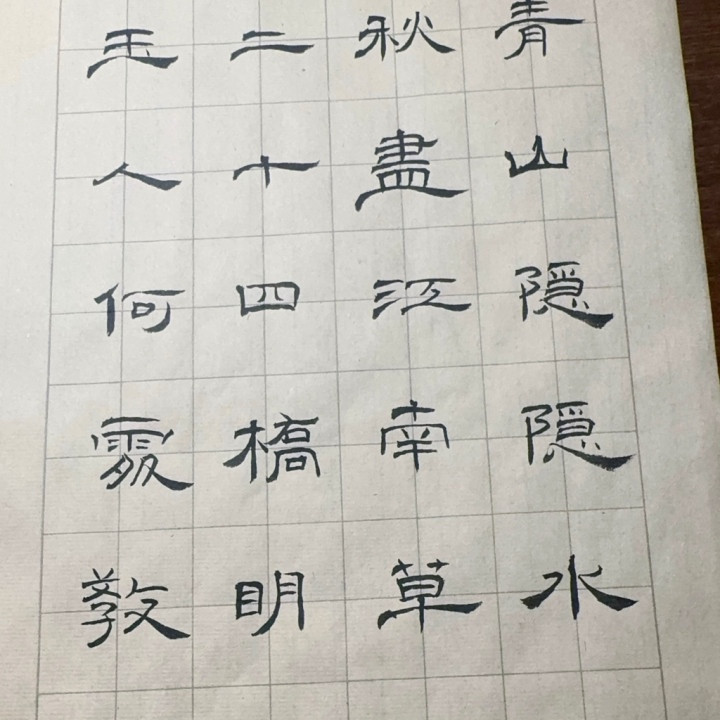 青山隐隐水
秋盡江南草
二十四橋明
玉人何處教